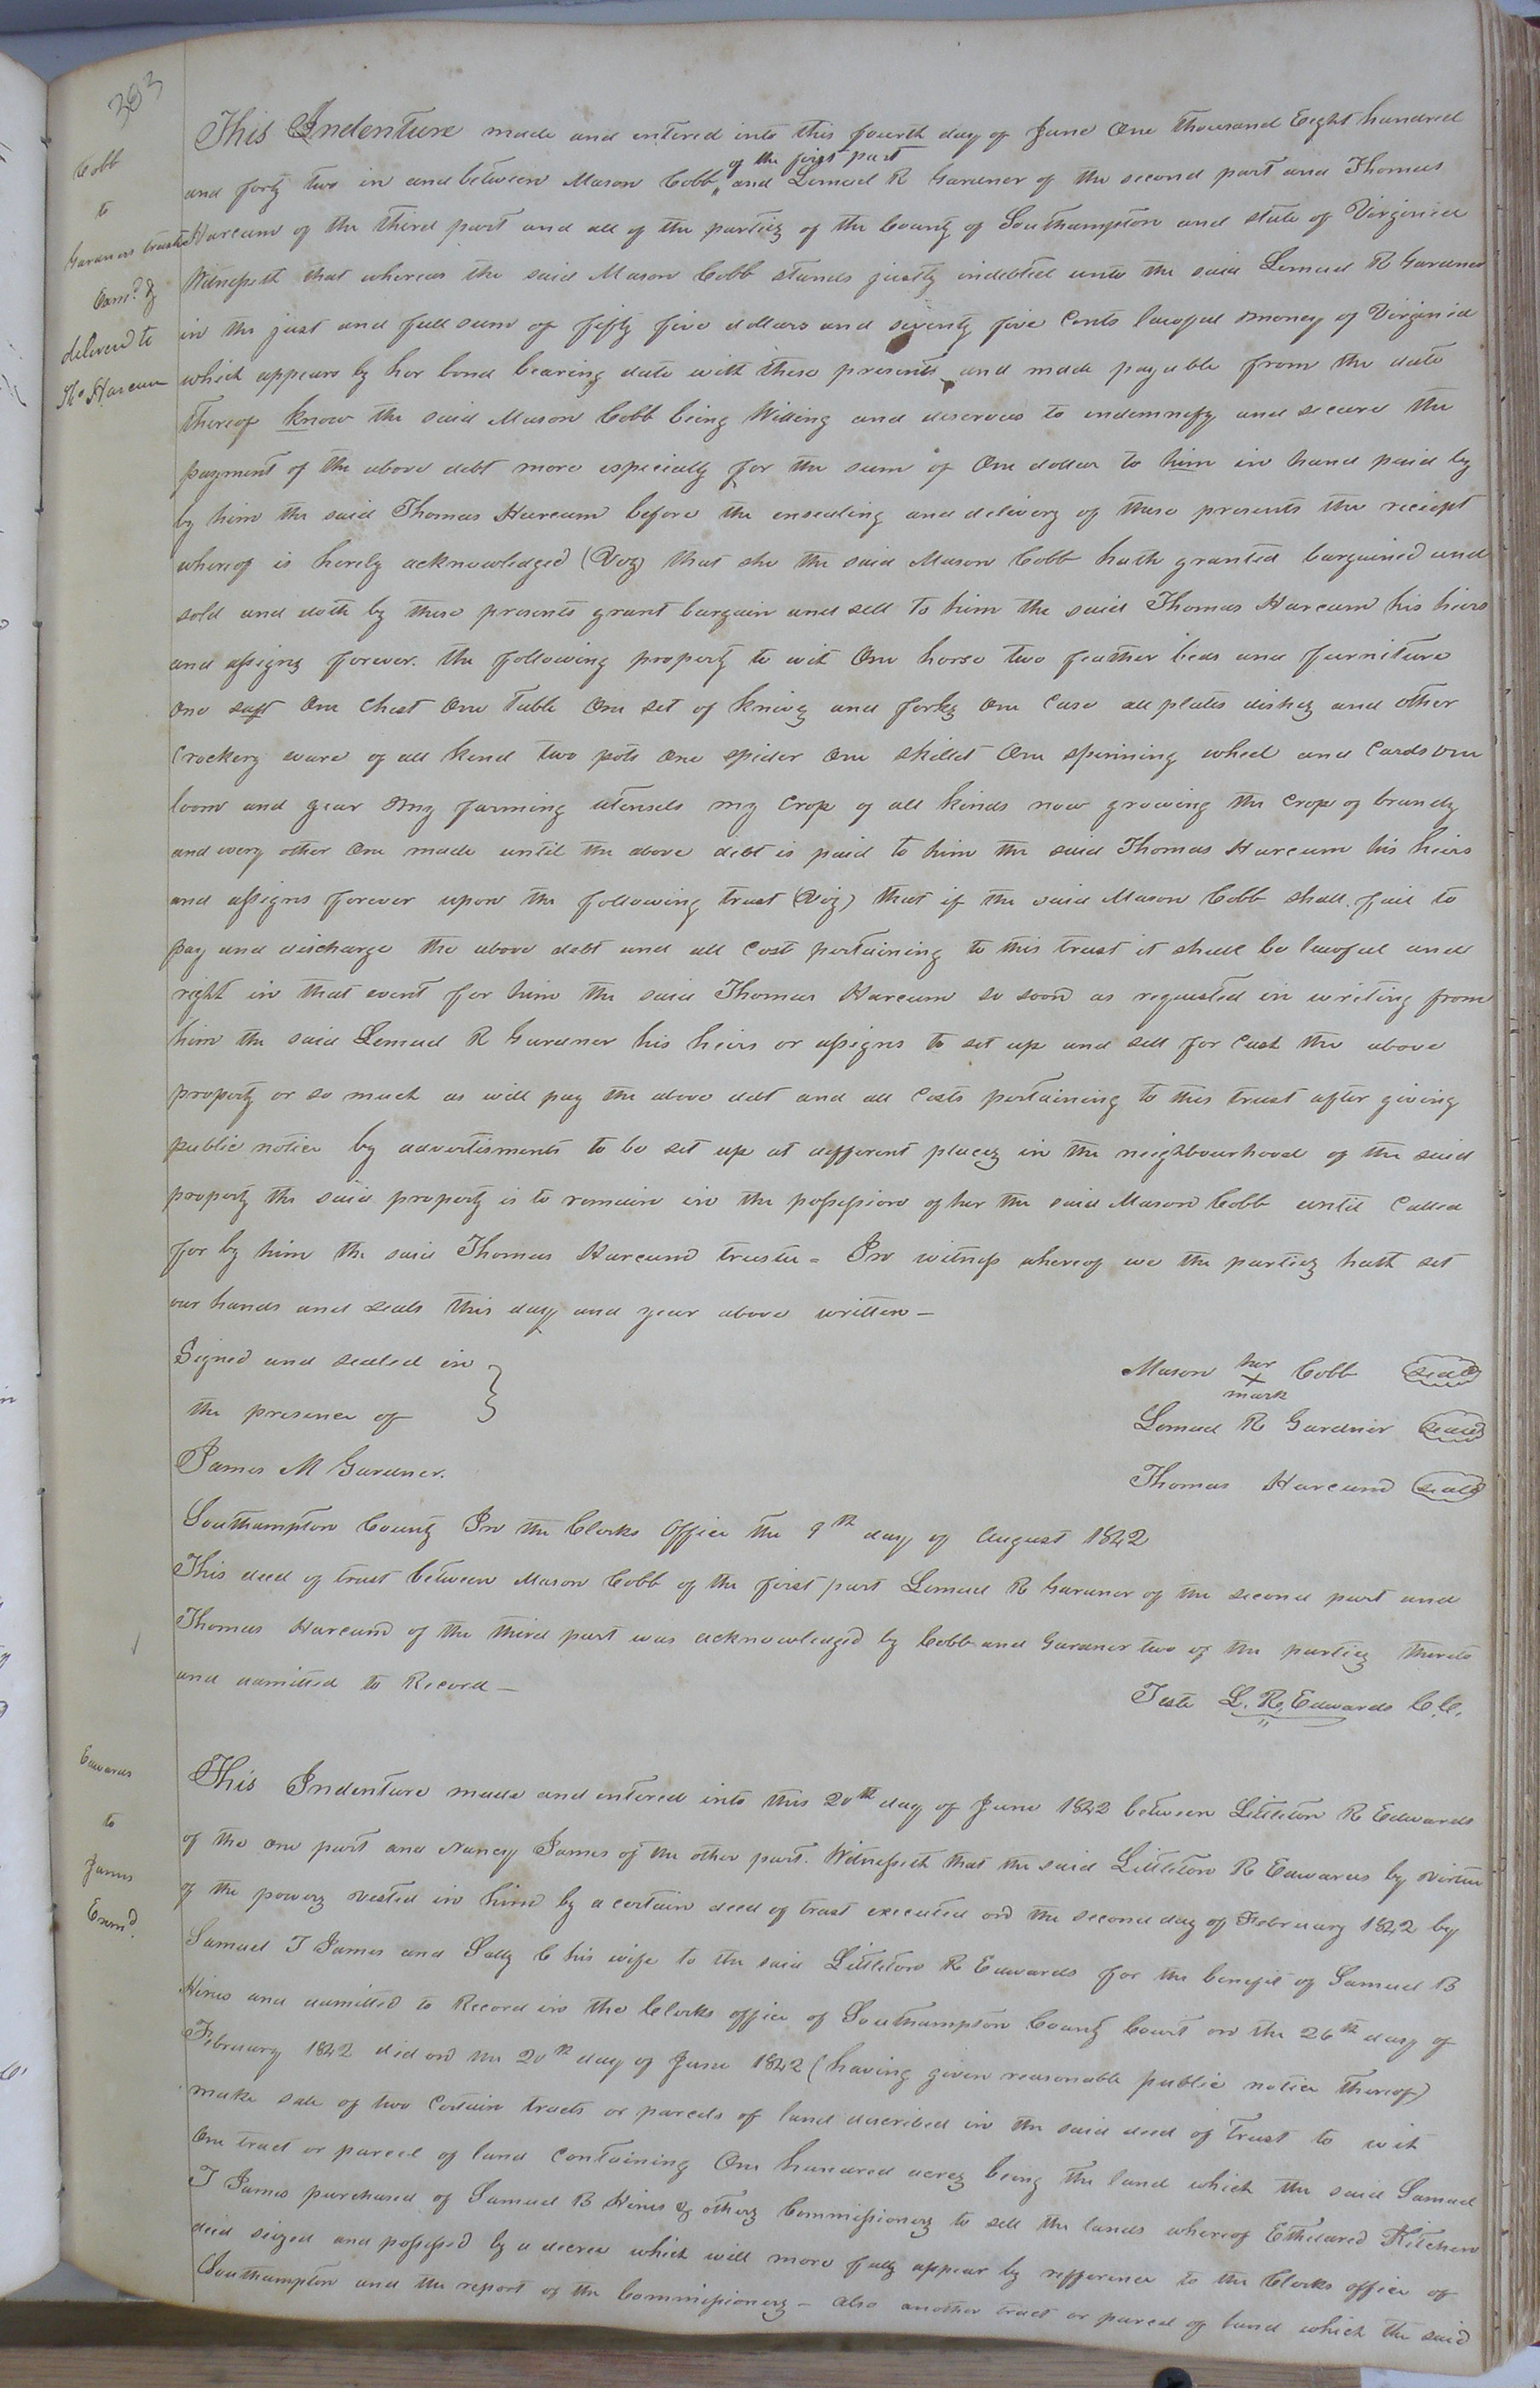 303
Cobb
to
Gardners trustee
Exmd. &
delivered to
Tho Harcum
This Indenture made and entered into this fourth day of June One thousand Eight hundred
and forty two in and between Mason Cobb of the first part and Lemuel R Gardner of the second part and Thomas
Harcum of the third part and all of the parties of the County of Southampton and state of Virginia
Witnesseth that whereas the said Mason Cobb stands justly indebted unto the said Lemuel R Gardner
in the just and full sum of fifty five dollars and seventy five Cents lawful money of Virginia
which appears by her bond bearing date with these presents and made payable from the date
thereof know the said Mason Cobb being Willing and desirous to indemnify and secure the
payment of the above debt more especially for the sum of One dollar to him in hand paid by
by him the said Thomas Harcum before the ensealing and delivery of these presents the reciept
whereof is hereby acknowledged (Viz) that she the said Mason Cobb hath granted bargained and
sold and doth by these presents grant bargain and sell to him the said Thomas Harcum his heirs
and assigns forever. the following property to wit One horse two feather beds and furniture
one One Chest One Table One set of knives and forks One Case all plates dishes and other
Crockery ware of all kind two pots One spider One skillet One spinning wheel and Cards One
loom and gear my farming utensels my Crop of all kinds now growing the Crop of brandy
and every other One made until the above debt is paid to him the said Thomas Harcum his heirs
and assigns forever upon the following trust (Viz) that if the said Mason Cobb shall fail to
pay and discharge the above debt and all Cost pertaining to this trust it shall be lawful and
right in that event for him the said Thomas Harcum so soon as requested in writing from
him the said Lemuel R Gardner his heirs or assigns to set up and sell for Cash the above
property or so much as will pay the above debt and all Costs pertaining to this trust after giving
public notice by advertisments to be set up at different places in the neighbourhood of the said
property the said property is to remain in the possession of her the said Mason Cobb until Called
for by him the said Thomas Harcum trustee - In witness whereof we the parties hath set
our hands and seals this day and year above written -
Signed and sealed in
the presence of
James M Gardner.
Mason her X mark Cobb seal
Lemuel R Gardner seal
Thomas Harcum seal
Southampton County In the Clerks Office the 9th day of August 1842
This deed of trust between Mason Cobb of the first part Lemuel R Gardner of the second part and
Thomas Harcum of the third part was acknowledged by Cobb and Gardner two of the parties thereto
and admitted to Record -
Teste L. R. Edwards C.C.
Edwards
to
James
Exmd.
This Indenture made and entered into this 20th day of June 1842 between Littleton R Edwards
of the one part and Nancy James of the other part. Witnesseth that the said Littleton R Edwards by virtue
of the powers vested in him by a certain deed of trust executed on the second day of February 1842 by
Samuel T James and Sally C his wife to the said Littleton R Edwards for the benefit of Samuel B
Hines and admitted to Record in the Clerks office of Southampton County Court on the 26th day of
February 1842 did on the 20th day of June 1842 (having given reasonable public notice thereof)
make sale of two Certain tracts or parcels of land described in the said deed of trust to wit
One tract or parcel of land Containing One hundred acres being the land which the said Samuel
T James purchased of Samuel B Hines & others Commissioners to sell the lands whereof Etheldred Kitchen
died seized and possessed by a decree which will more fully appear by refference to the Clerks office of
Southampton and the report of the Commissioners - also another tract or parcel of land which the said